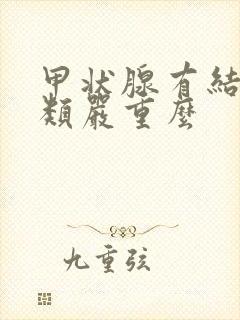 甲状腺有結
類嚴重麼
九重弦